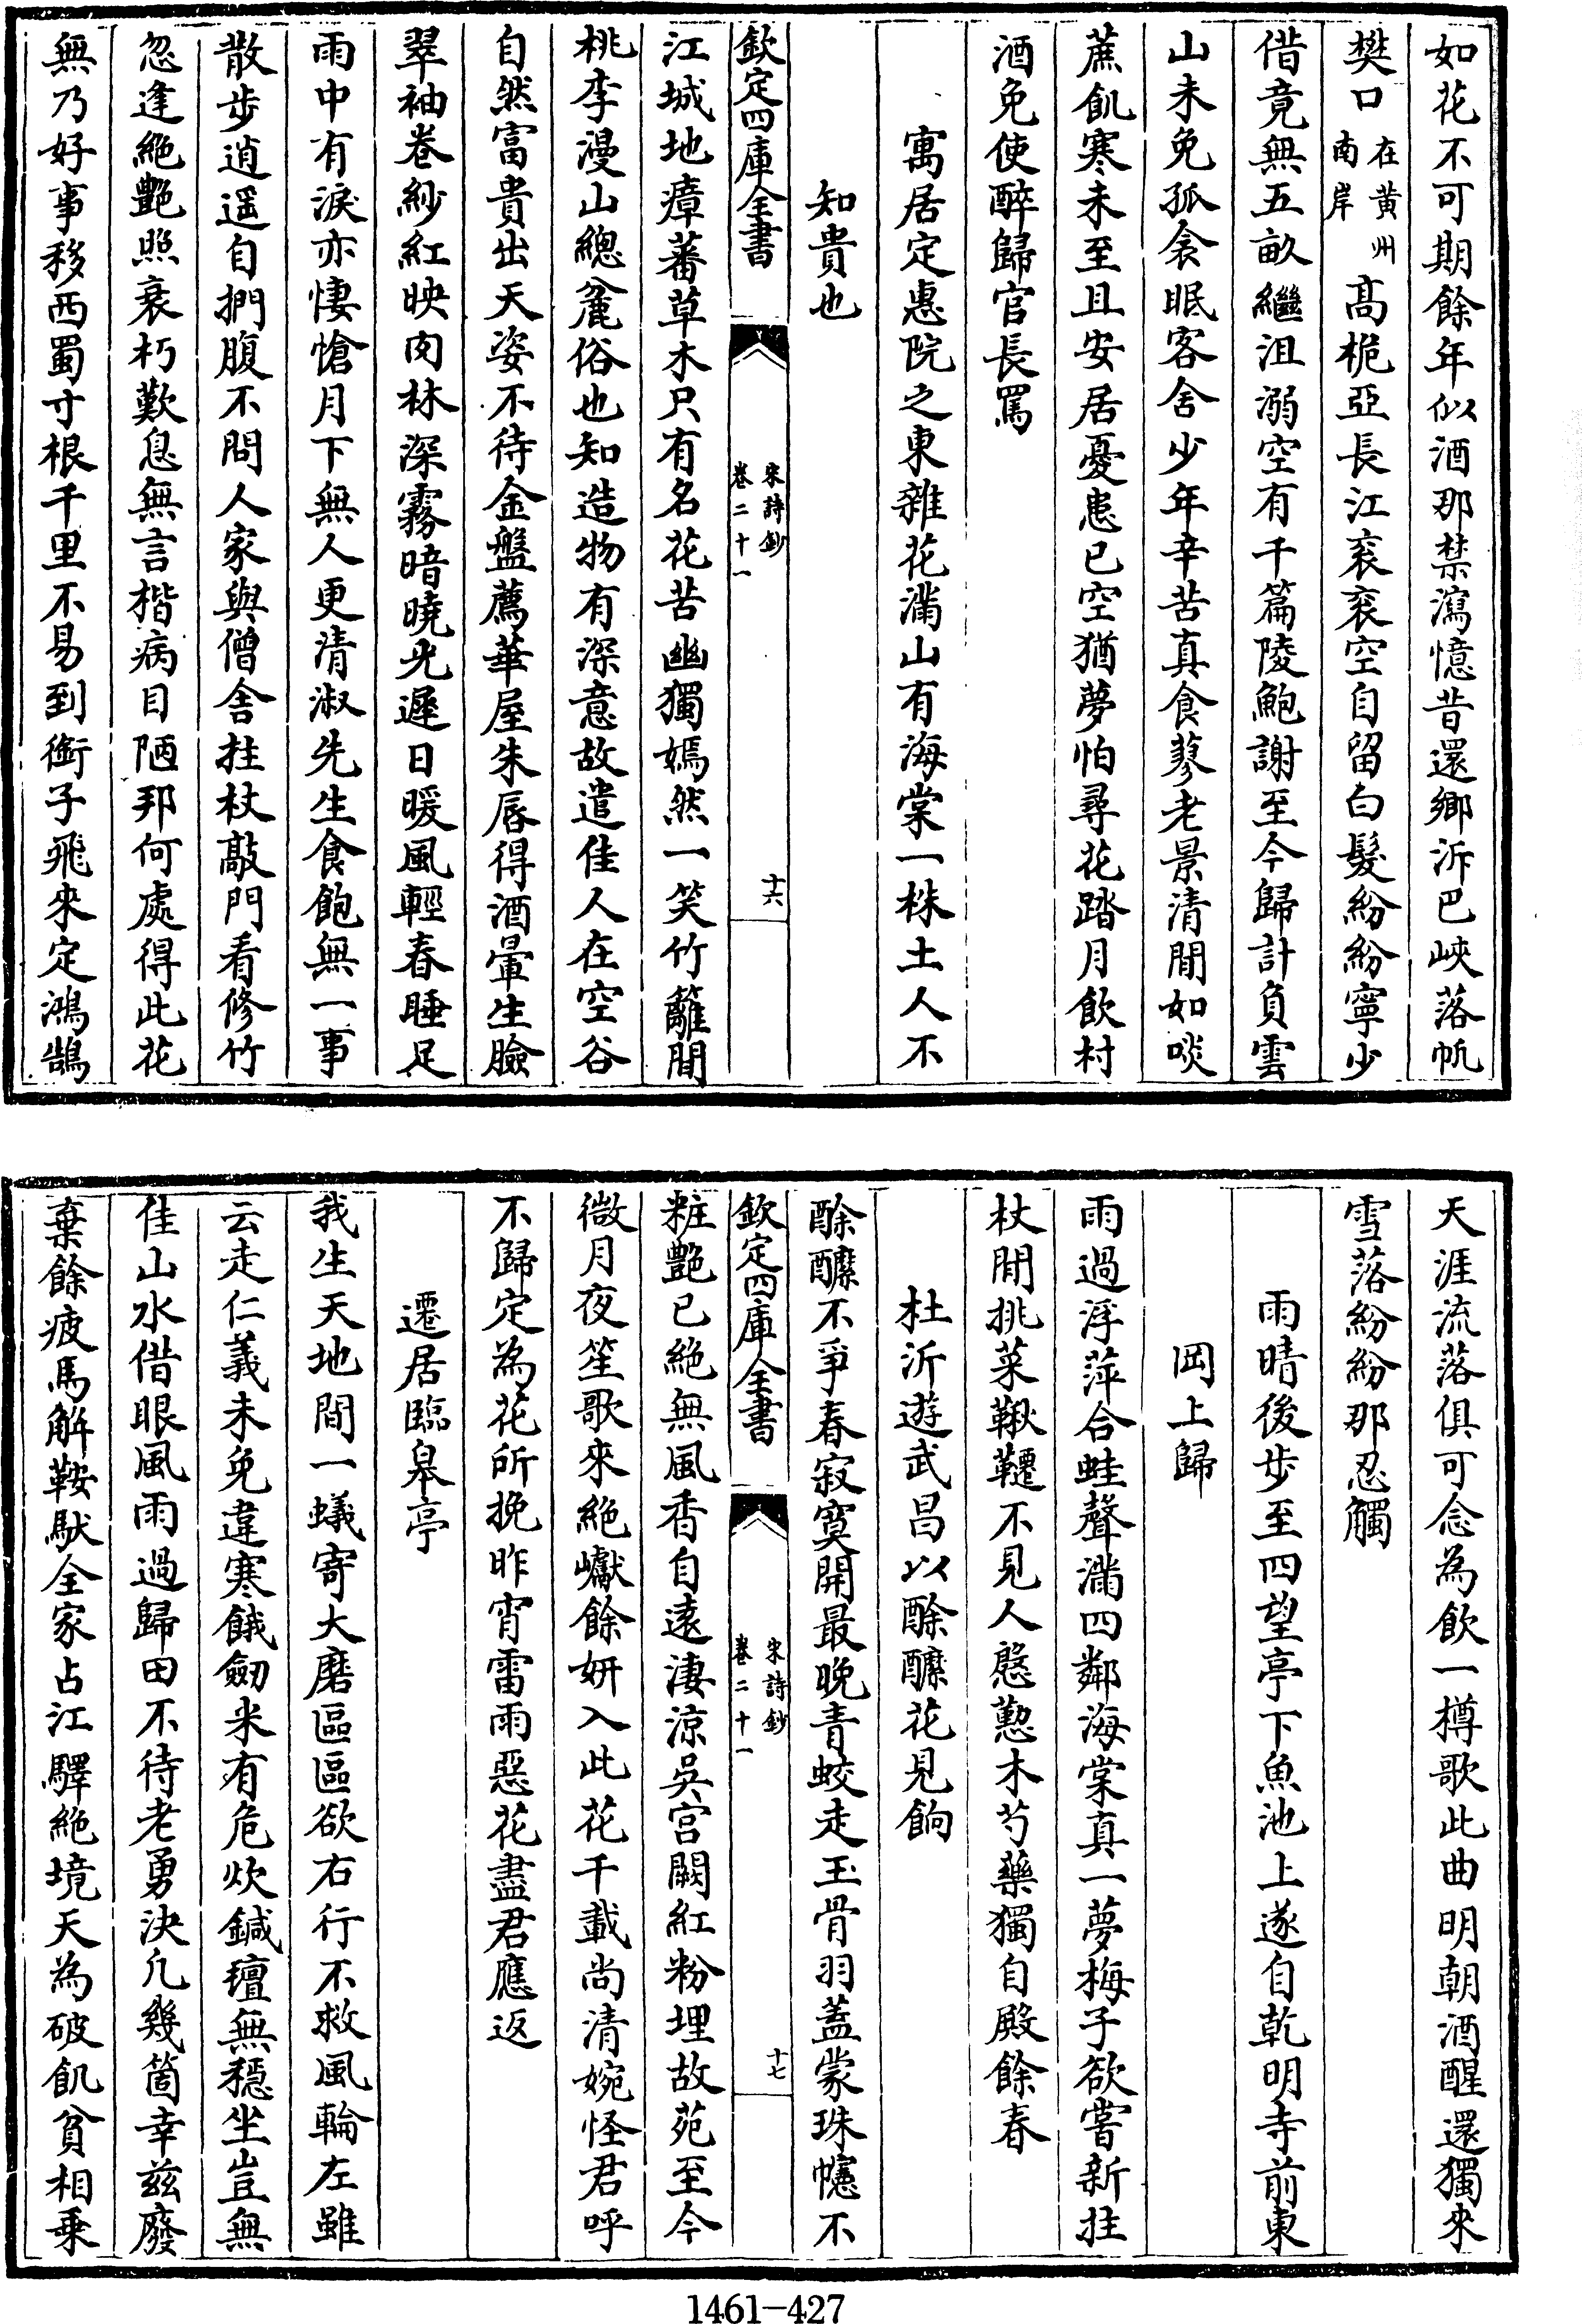 如花不可期餘年似酒那禁瀉憶昔還鄉泝巴峽落帆
樊口在黃州南岸高桅亞長江衮衮空自留白髮紛紛寧少
借竟無五畝繼沮溺空有千篇陵鮑謝至今歸計負雲
山未免孤衾眠客舍少年辛苦真食蓼老景清閒如啖
蔗飢寒未至且安居憂患已空猶夢怕尋花踏月飲村
酒免使醉歸官長罵
寓居定惠院之東雜花滿山有海棠一株土人不
知貴也
欽定四庫全書
宋詩鈔
卷二十一
十六
江城地瘴蕃草木只有名花苦幽獨嫣然一笑竹籬間
桃李漫山總麄俗也知造物有深意故遣佳人在空谷
自然富貴出天姿不待金盤薦華屋朱唇得酒暈生臉
翠袖卷紗紅映肉林深霧暗曉光遲日暖風輕春睡足
雨中有淚亦悽愴月下無人更清淑先生食飽無一事
散步逍遥自捫腹不問人家與僧舍拄杖敲門看修竹
忽逢絶艶照衰朽歎息無言揩病目陋邦何處得此花
無乃好事移西蜀寸根千里不易到銜子飛來定鴻鵠
天涯流落俱可念為飲一樽歌此曲明朝酒醒還獨來
雪落紛紛那忍觸
雨晴後步至四望亭下魚池上遂自乾明寺前東
岡上歸
雨過浮萍合蛙聲滿四鄰海棠真一夢梅子欲嘗新拄
杖閒挑菜鞦韆不見人慇懃木芍藥獨自殿餘春
杜沂遊武昌以酴醿花見餉
酴醿不爭春寂寞開最晚青蛟走玉骨羽蓋蒙珠幰不
欽定四庫全書
宋詩鈔
卷二十一
十七
粧艶已絶無風香自遠淒涼吳宮闕紅粉埋故苑至今
微月夜笙歌來絶巘餘妍入此花千載尚清婉怪君呼
不歸定為花所挽昨宵雷雨惡花盡君應返
遷居臨皋亭
我生天地間一蟻寄大磨區區欲右行不救風輪左雖
云走仁義未免違寒餓劒米有危炊鍼氊無穩坐豈無
佳山水借眼風雨過歸田不待老勇決凡幾箇幸兹廢
棄餘疲馬解鞍馱全家占江驛絶境天為破飢貧相乗
1461-427